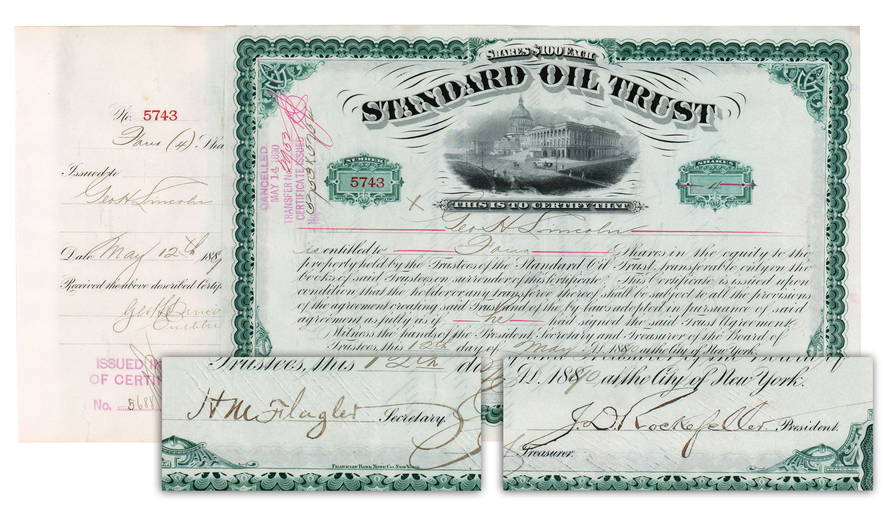 No. 5743
Four (4) Sha
Issued to
Geo H Lincoln
Date May 12th 188
Received the above described Certif
Geo H Linco
ISSUED IN
OF CERTIF
No. 5681
SHARES $100 EACH
STANDARD OIL TRUST
CANCELLED
MAY 14 1890
TRANSFER No.
CERTIFICATE ISSUED
No.
NUMBER
5743
SHARES
4
THIS IS TO CERTIFY THAT
X Geo H Lincoln
is entitled to Four Shares in the equity to the
property held by the Trustees of the Standard Oil Trust, transferable only on the
books of said Trustees on surrender of this Certificate. This Certificate is issued upon
condition that the holder or any transferee thereof shall be subject to all the provisions
of the agreement creating said Trust and of the by-laws adopted in pursuance of said
agreement as fully as if he had signed the said Trust Agreement.
Witness the hands of the President, Secretary and Treasurer of the Board of
Trustees, this 12th day of May A.D. 188 at the City of New York.
Trustees, this 12th da
H M Flagler Secretary.
FRANKLIN BANK NOTE CO. NEW YORK
A.D. 188 at the City of New York.
J. D. Rockefeller President.
Treasurer.